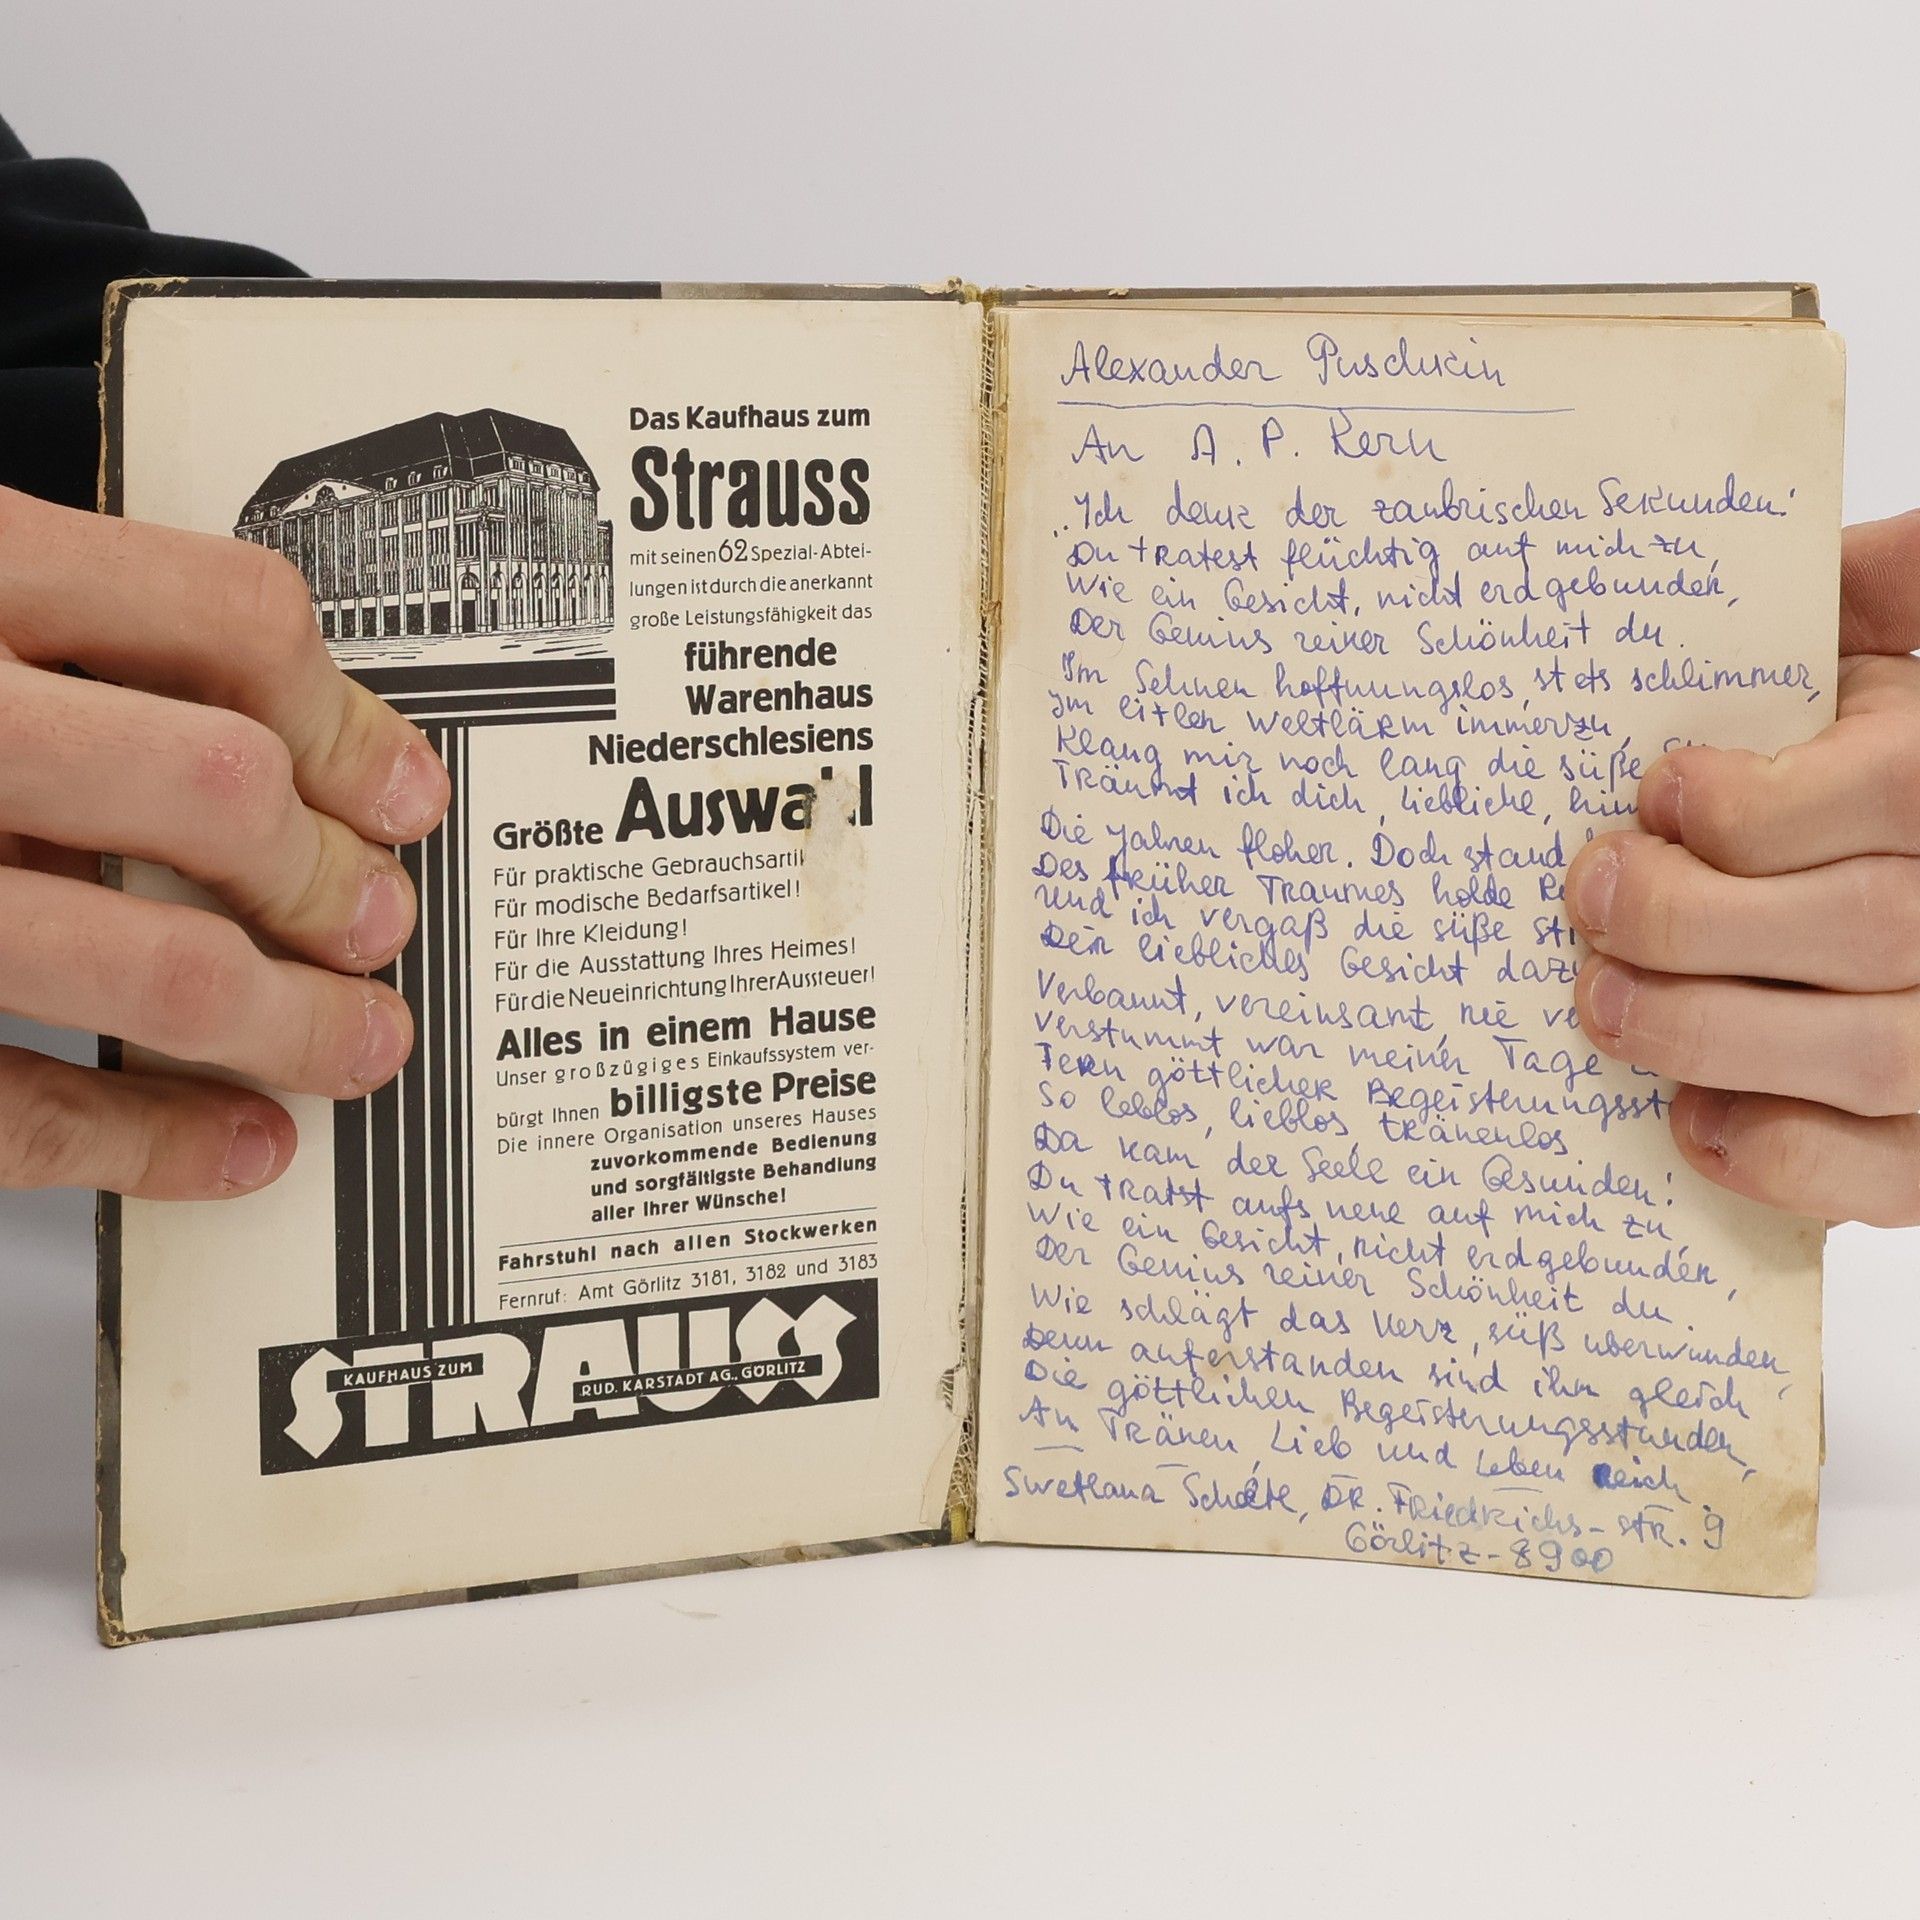 Das Kaufhaus zum
Strauss
mit seinen 62 Spezial-Abtei-
lungen ist durch die anerkannt
große Leistungsfähigkeit das
führende
Warenhaus
Niederschlesiens
Größte Auswahl
Für praktische Gebrauchsartik
Für modische Bedarfsartikel!
Für Ihre Kleidung!
Für die Ausstattung Ihres Heimes!
Für die Neueinrichtung Ihrer Aussteuer!
Alles in einem Hause
Unser großzügiges Einkaufssystem ver-
bürgt Ihnen billigste Preise
Die innere Organisation unseres Hauses
zuvorkommende Bedienung
und sorgfältigste Behandlung
aller Ihrer Wünsche!
Fahrstuhl nach allen Stockwerken
Fernruf: Amt Görlitz 3181, 3182 und 3183
STRAUSS
KAUFHAUS ZUM
RUD. KARSTADT AG., GÖRLITZ
Alexander Puschkin
An A. P. Kern
Ich denk der zaubrischen Sekunden:
Du tratest flüchtig auf mich zu,
Wie ein Gesicht, nicht erdgebunden,
Der Genius reiner Schönheit du.
Im Sehnen hoffnungslos, stets schlimmer,
Im eitlen Weltlärm immerzu,
Klang mir noch lang die süße
Träumt ich dich, Liebliche,
Die Jahren flohen. Doch stand
Des früher Traumes holde
Und ich vergaß die süße
Dein liebliches Gesicht
Verbannt, vereinsamt, nie
Verstummt war meiner Tage
Fern göttlicher Begeisterungsst
So leblos, lieblos, tränenlos.
Da kam der Seele ein Gesunden:
Du tratst aufs neue auf mich zu
Wie ein Gesicht, nicht erdgebunden,
Der Genius reiner Schönheit du.
Wie schlägt das Herz, süß uberwunden,
Denn auferstanden sind ihm gleich
Die göttlichen Begeisterungsstunden,
An Tränen, Lieb und Leben reich
Swetlana DR. Friedrichs-str. 9
Görlitz-8900